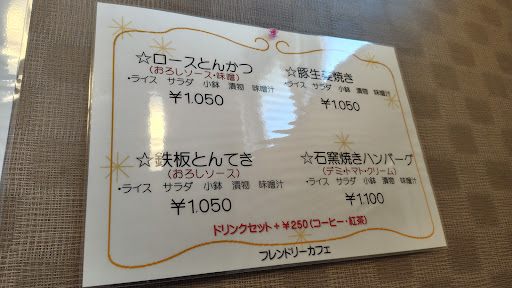 ☆ロースとんかつ
(おろしソース・味噌)
・ライス サラダ 小鉢 漬物 味噌汁
¥1.050
☆豚生姜焼き
・ライス サラダ 小鉢 漬物 味噌汁
¥1.050
☆鉄板とんてき
(おろしソース)
・ライス サラダ 小鉢 漬物 味噌汁
¥1.050
☆石窯焼きハンバーグ
(デミ・トマト・クリーム)
・ライス サラダ 小鉢 漬物 味噌汁
¥1.100
ドリンクセット+¥250(コーヒー・紅茶)
フレンドリーカフェ